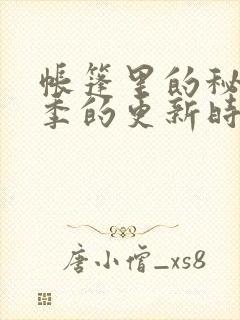 帐篷里的秘
季的更新时
唐小僧_xs8